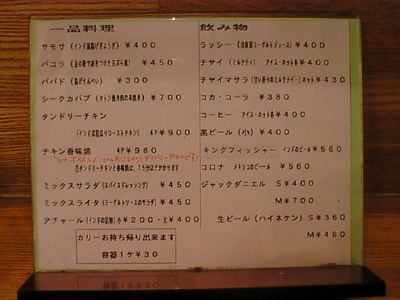 一品料理
サモサ (インド風揚げぎょうざ) ￥400
パコラ (豆の粉で衣をつけた天ぷら風) ￥450
パパド (豆せんべい) ￥300
シークカバブ (マトン挽き肉の串焼き) ￥700
タンドリーチキン
(インド式若鶏ローストチキン) 4P ￥900
チキン香味焼 4P ￥980
ミックスサラダ (スパイスドレッシング) ￥450
ミックスライタ (ヨーグルトソースのサラダ) ￥450
アチャール (インドの漬物) 小￥200・大￥400
カリーお持ち帰り出来ます
容器1ケ￥30
飲み物
ラッシー (自家製ヨーグルトジュース) ￥400
チャイ (ミルクティ) アイス・ホット各￥400
チャイマサラ (甘い香りのミルクティ) ホット￥430
コカ・コーラ ￥380
コーヒー アイス・ホット各￥400
黒ビール (小) ￥400
キングフィッシャー インドのビール￥560
コロナ メキシコのビール ￥560
ジャックダニエル S ￥400
M ￥700
生ビール (ハイネケン) S ￥360
M ￥460